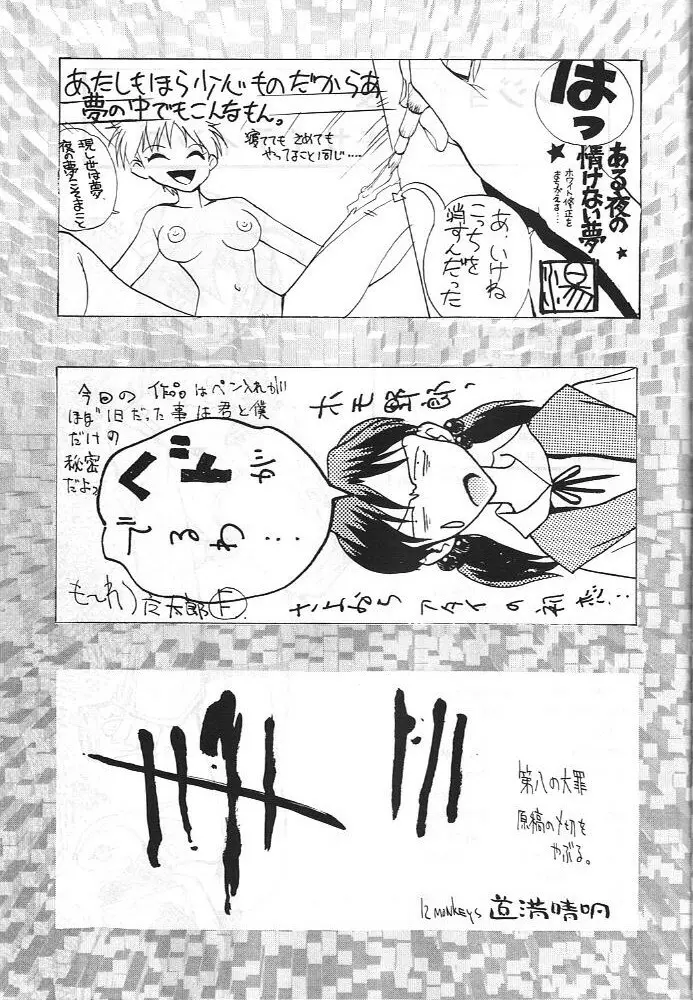 あたしもほら少心ものだからあ
夢の中でもこんなもん。
はっ
ある夜の
情けない夢
ホワイト修正を
まちがえる…
寝てても さめても
やってること同じ….
現し世は夢、
夜の夢こそまこと
あ、いけね
こっちを
消すんだった
今回の 作品はペン入れが
ほぼ1日だった事は君と僕
だけの
秘密
だよ。
ヘドが
でるわ…
も〜れつ
第八の大罪
原稿の〆切を
やぶる。
12 MONKEYS 道満晴明